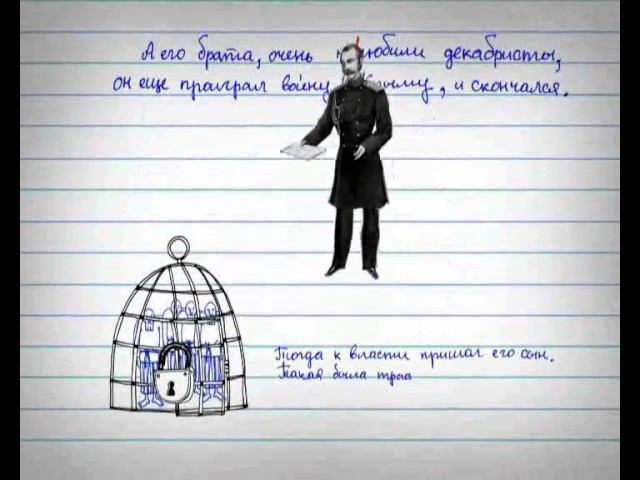 А его брата, очень любили декабристы,
он еще проиграл войну Крыму, и скончался.
Тогда к власти пришол его сын.
Такая была тра